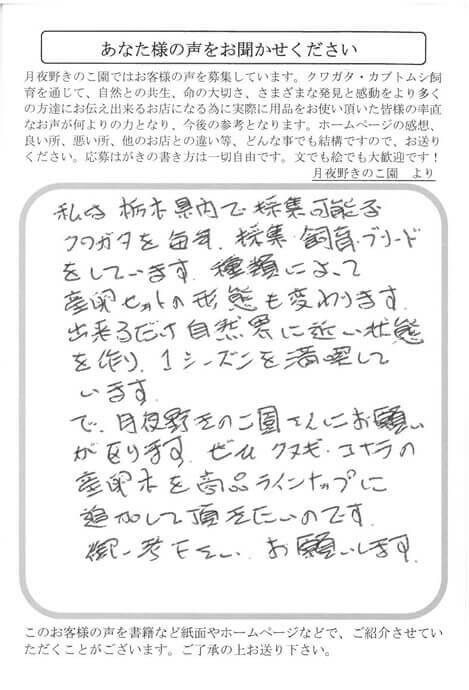 あなた様の声をお聞かせください
月夜野きのこ園ではお客様の声を募集しています。クワガタ・カブトムシ飼
育を通じて、自然との共生、命の大切さ、さまざまな発見と感動をより多く
の方達にお伝え出来るお店になる為に実際に用品をお使い頂いた皆様の率直
なお声が何よりの力となり、今後の参考となります。ホームページの感想、
良い所、悪い所、他のお店との違い等、どんな事でも結構ですので、お送り
ください。応募はがきの書き方は一切自由です。文でも絵でも大歓迎です！
月夜野きのこ園　より
私は栃木県内で採集可能な
クワガタを毎年、採集・飼育・ブリード
をしています。種類によって
産卵セットの形態も変わります。
出来るだけ自然界に近い状態
を作り、1シーズンを満喫して
います。
で、月夜野きのこ園さんにお願い
が有ります。ぜひクヌギ・コナラの
産卵木を商品ラインナップに
追加して頂きたいのです。
御一考下さい。お願いします。
このお客様の声を書籍など紙面やホームページなどで、ご紹介させてい
ただくことがございます。ご了承の上お送り下さい。